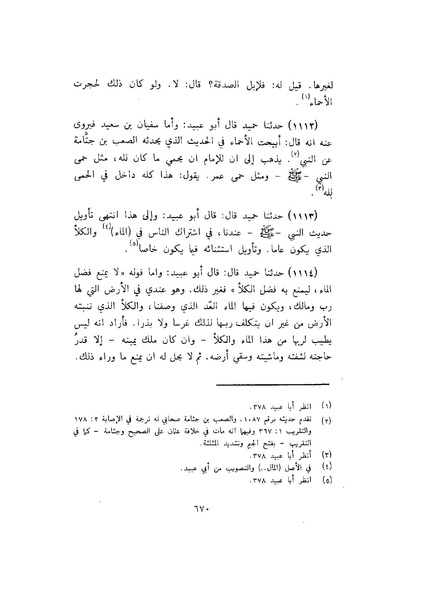 لغيرها. قيل له: فلإبل الصدقة؟ قال: لا. ولو كان ذلك لحجرت
الأحماء(١).
(١١١٢) حدثنا حميد قال أبو عبيد: وأما سفيان بن سعيد فيروى
عنه انه قال: أبيحت الأحماء في الحديث الذي يحدثه الصعب بن جثّامة
عن النبي(٢). يذهب إلى ان للإمام ان يحمي ما كان لله، مثل حمى
النبي - ﷺ - ومثل حمى عمر. يقول: هذا كله داخل في الحمى
لله(٣).
(١١١٣) حدثنا حميد قال: قال أبو عبيد: وإلى هذا انتهى تأويل
حديث النبي - ﷺ - عندنا، في اشتراك الناس في (الماء)(٤) والكلأ
الذي يكون عاما. وتأويل استثنائه فيما يكون خاصا(٥).
(١١١٤) حدثنا حميد قال: قال أبو عبيد: واما قوله «لا يمنع فضل
الماء، ليمنع به فضل الكلأ» فغير ذلك. وهو عندي في الأرض التي لها
رب ومالك، ويكون فيها الماء العدّ الذي وصفنا، والكلأ الذي تنبته
الأرض من غير ان يتكلف ربها لذلك غرسا ولا بذرا. فأراد انه ليس
يطيب لربها من هذا الماء والكلأ - وان كان ملك يمينه - إلا قدرُ
حاجته لشفته وماشيته وسقي أرضه. ثم لا يحل له ان يمنع ما وراء ذلك.
(١) انظر أبا عبيد ٣٧٨.
(٢) تقدم حديثه برقم ١٠٨٧. والصعب بن جثامة صحابي له ترجمة في الإصابة ٢: ١٧٨
والتقريب ١: ٣٦٧ وفيهما انه مات في خلافة عثمان على الصحيح وجثامة - كما في
التقريب - بفتح الجيم وتشديد المثلثة.
(٣) أنظر أبا عبيد ٣٧٨.
(٤) في الأصل (المال..) والتصويب من أبي عبيد.
(٥) انظر أبا عبيد ٣٧٨.
٦٧٠